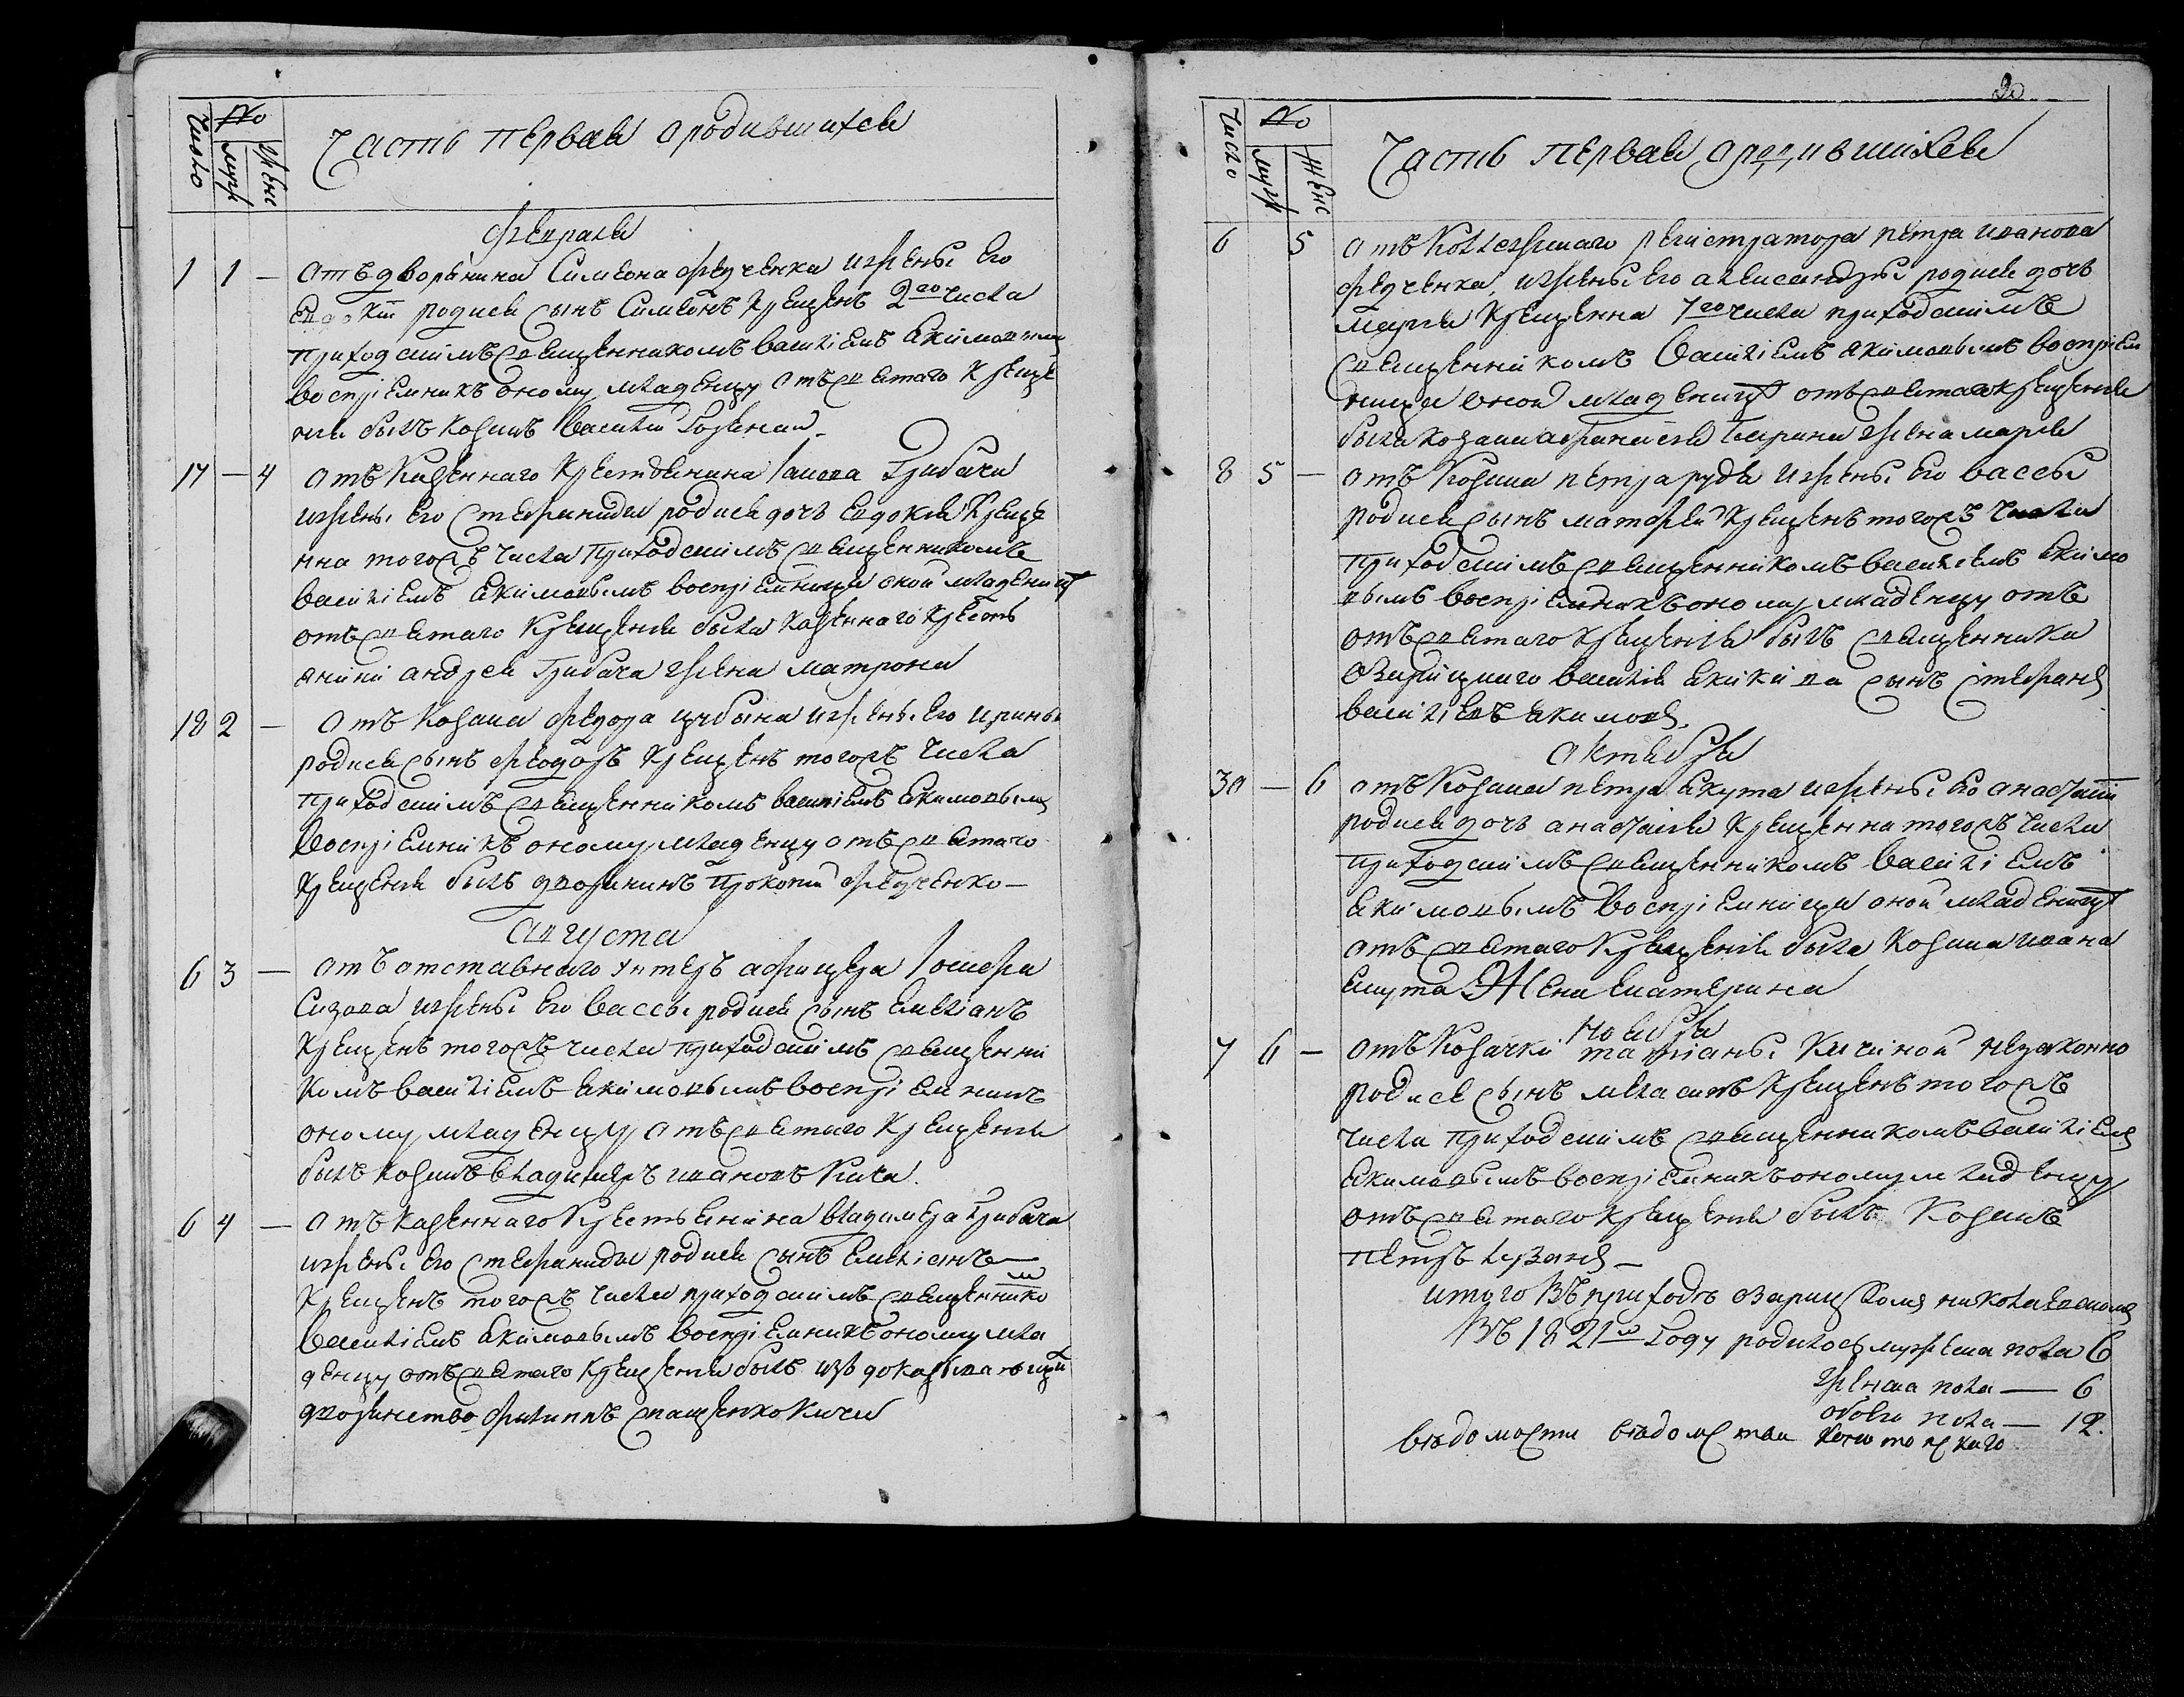 Число
№
муж
женс
Часть первая о родившихся
Февраля
1 1 — Отъ дворянина Симеона Федченка и жены его
Евдокіи родися сынъ Симеонъ крещенъ 2го числа
приходскимъ священникомъ Василіемъ Якимовым
воспріемникъ оному младенцу отъ святаго креще
нія былъ козакъ Василій
17 — 4 Отъ казеннаго крестьянина Іакова Грибача
и жены его Стефаниды родися дочь Евдокія креще
нна тогожъ числа приходскимъ священникомъ
Василіемъ Якимовымъ воспріемница оной младеницѣ
отъ святаго крещенія была казеннаго кресть
янина Андрея Грибача жена Матрона
18 2 — Отъ козака Федора Цибына и жены его Ирины
родися сынъ Феодоръ крещенъ тогожъ числа
приходскимъ священникомъ Василіемъ Якимовым
воспріемникъ оному младенцу отъ святаго
крещенія былъ дворянинъ Прокопій Федченко —
Августа
6 3 — Отъ отставнаго унтеръ афицера Іосифа
Сизова и жены его Вассы родися сынъ Емеліанъ
крещенъ тогожъ числа приходскимъ священни
комъ Василіемъ Якимовымъ воспріемникъ
оному младенцу отъ святаго крещенія
былъ козакъ Владимиръ Ивановъ
6 4 — Отъ казеннаго крестьянина Владимера Грибача
и жены его Стефаниды родися сынъ Емеліанъ —
крещенъ тогожъ числа приходскимъ священнико
м
Василіемъ Якимовымъ воспріемникъ оному мла
денцу отъ святаго крещенія былъ
дворянство Филиппъ
20
Число
№
муж
женс
Часть первая о родившихся
6 5 Отъ коллежскаго регистратора Петра Иванова
Федченка и жены его Александры родися дочь
Марія крещенна 7го числа приходскимъ
священникомъ Василіемъ Якимовымъ воспріем
ница оной младеницѣ отъ святаго крещенія
была козака жена Марія
8 5 — Отъ козака Петра Рудя и жены его Вассы
родися сынъ Матфей крещенъ тогожъ числа
приходскимъ священникомъ Василіемъ Якимо
вымъ воспріемникъ оному младенцу отъ
отъ святаго крещенія былъ священника
Озарицкаго Василія сынъ Стефанъ
Василіевъ Якимовъ.
Октября
30 — 6 Отъ козака Петра Якута и жены его Анастасіи
родися дочь Анастасія крещенна тогожъ числа
приходскимъ священникомъ Василіемъ
Якимовымъ воспріемница оной младеницѣ
отъ святаго крещенія была козака Ивана
Якута жена Екатерина
Ноября
7 6 — Отъ козачки Татіаны Кичиной незаконно
родися сынъ крещенъ тогожъ
числа приходскимъ священникомъ Василіем
Якимовымъ воспріемникъ оному младенцу
отъ святаго крещенія былъ козакъ
Петръ Лузанъ —
Итого въ приходѣ Озарицкомъ Николаевскомъ
въ 1821м году родилось мужеска пола 6
женска пола — 6
обоего пола — 12.
вѣдомости вѣдомства